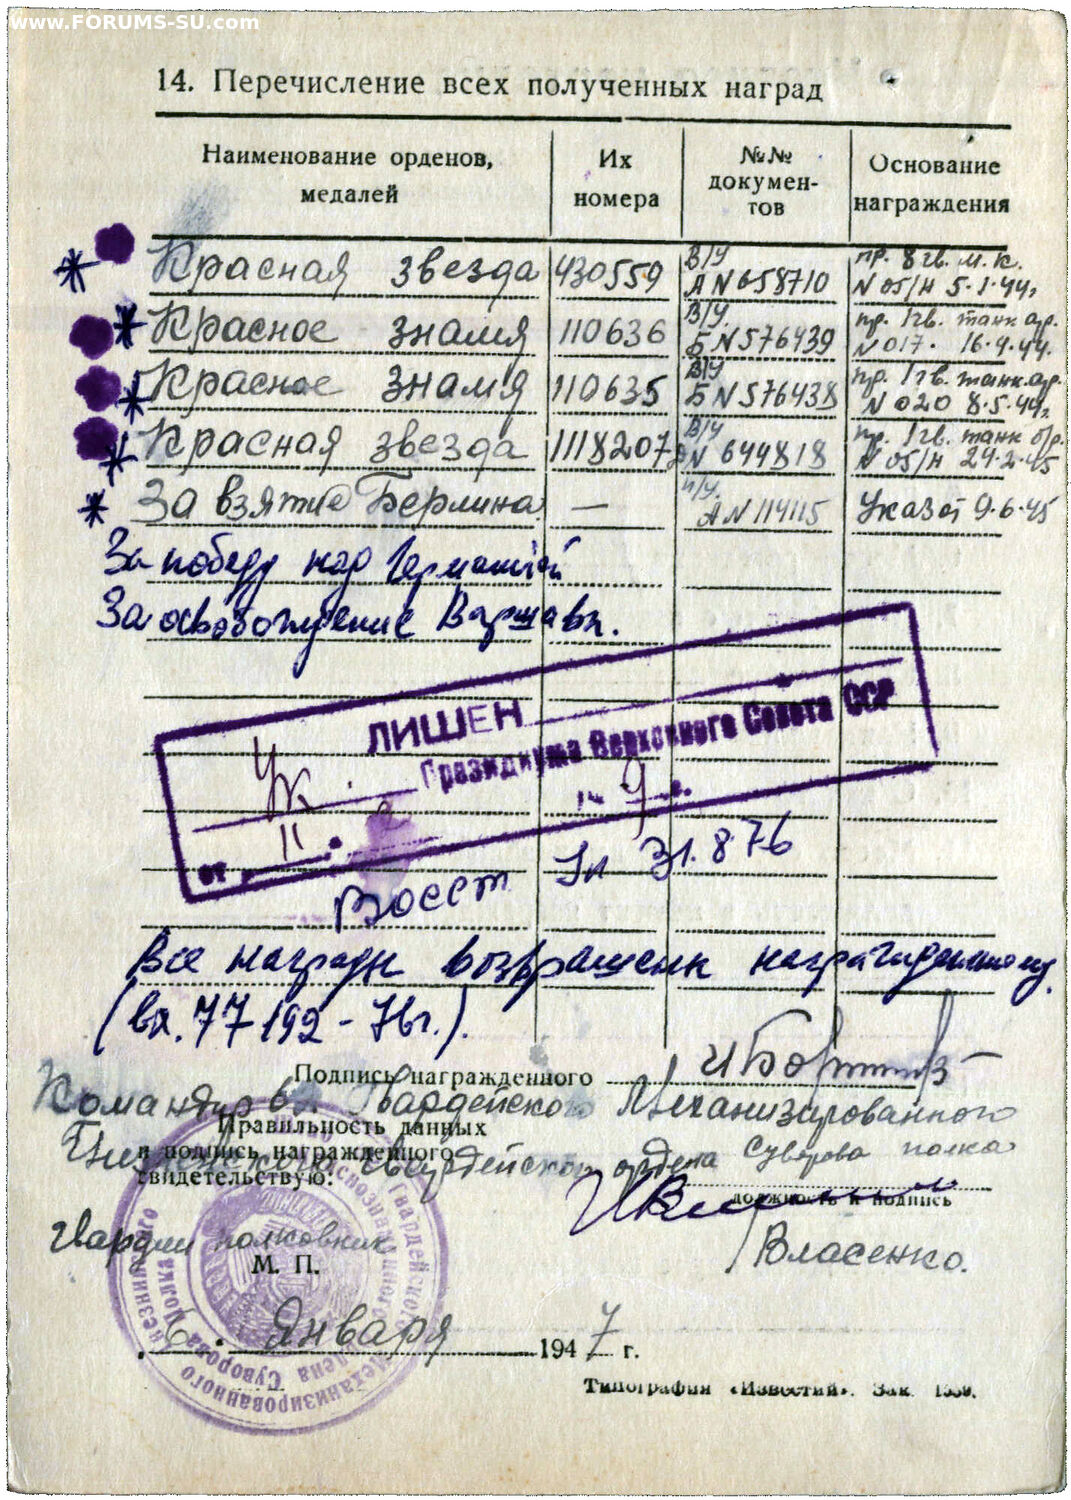 www.FORUMS-SU.com
14. Перечисление всех полученных наград
Наименование орденов, медалей Их номера №№ докумен-тов Основание награждения
Красная звезда 430559 В/У А N 658710 пр. 8 гв. м.к. N 05/Н 5.1.44г
Красное знамя 110636 В/У. Б N 576439 пр. 1 гв. танк. ар. N 017. 16.4.44.
Красное знамя 110635 В/У Б N 576438 пр. 1 гв. танк. ар. N 020 8.5.44г
Красная звезда 1118207 В/У N 644818 пр. 1 гв. танк N 05/Н 24.2.45
За взятие Берлина — А N 114115 Указ от 9.6.45
За победу над Германией
За освобождение Варшавы.
ЛИШЕН
УК. Президиума Верховного Совета ССР
от 11.
Восст 31.8.76
Все награды возвращены награжденному
(вх. 77192-76г.).
Подпись награжденного
Командир Гвардейского Механизированного
Правильность данных
и подпись награжденного
Гвардейского ордена Суворова полка
свидетельствую:
должность и подпись
Гвардии полковник
Власенко.
М. П.
6. Января 1947 г.
Типография «Известий». Зак.